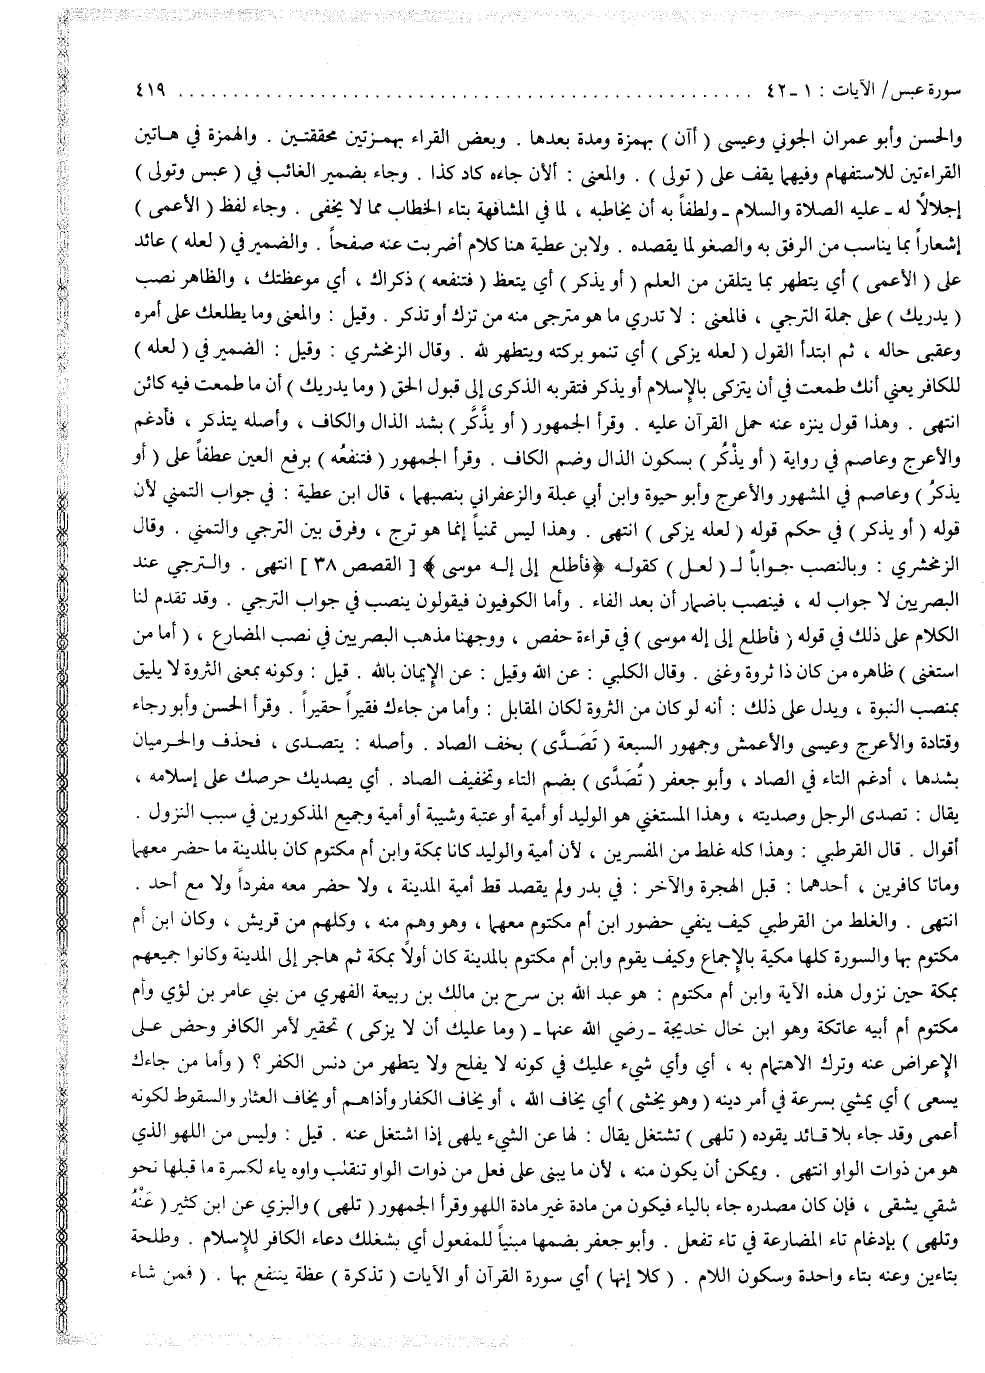 سورة عبس / الآيات : ١ ـ ٤٢ ........................................................ ٤١٩
والحسن وأبو عمران الجوني وعيسى ( أآن ) بهمزة ومدة بعدها . وبعض القراء بهمزتين محققتين . والهمزة في هاتين
القراءتين للاستفهام وفيهما يقف على ( تولى ) . والمعنى : ألأن جاءه كاد كذا . وجاء بضمير الغائب في ( عبس وتولى )
إجلالاً له ـ عليه الصلاة والسلام ـ ولطفاً به أن يخاطبه ، لما في المشافهة بتاء الخطاب مما لا يخفى . وجاء لفظ ( الأعمى )
إشعاراً بما يناسب من الرفق به والصغو لما يقصده . ولابن عطية هنا كلام أضربت عنه صفحاً . والضمير في ( لعله ) عائد
على ( الأعمى ) أي يتطهر بما يتلقن من العلم ( أو يذكر ) أي يتعظ ( فتنفعه ) ذكراك ، أي موعظتك ، والظاهر نصب
( يدريك ) على جملة الترجي ، فالمعنى : لا تدري ما هو مترجى منه من تزك أو تذكر . وقيل : والمعنى وما يطلعك على أمره
وعقبى حاله ، ثم ابتدأ القول ( لعله يزكى ) أي تنمو بركته ويتطهر لله . وقال الزمخشري : وقيل : الضمير في ( لعله )
للكافر يعني أنك طمعت في أن يتزكى بالإسلام أو يذكر فتقربه الذكرى إلى قبول الحق ( وما يدريك ) أن ما طمعت فيه كائن
انتهى . وهذا قول ينزه عنه حمل القرآن عليه . وقرأ الجمهور ( أو يذَّكَّر ) بشد الذال والكاف ، وأصله يتذكر ، فأدغم
والأعرج وعاصم في رواية ( أو يذْكُر ) بسكون الذال وضم الكاف . وقرأ الجمهور ( فتنفعُه ) برفع العين عطفاً على ( أو
يذكرُ ) وعاصم في المشهور والأعرج وأبو حيوة وابن أبي عبلة والزعفراني بنصبهما ، قال ابن عطية : في جواب التمني لأن
قوله ( أو يذكر ) في حكم قوله ( لعله يزكى ) انتهى . وهذا ليس تمنياً إنما هو ترج ، وفرق بين الترجي والتمني . وقال
الزمخشري : وبالنصب جواباً لـ ( لعل ) كقوله ﴿فأطلع إلى إله موسى ﴾ [ القصص ٣٨ ] انتهى . والترجي عند
البصريين لا جواب له ، فينصب باضمار أن بعد الفاء . وأما الكوفيون فيقولون ينصب في جواب الترجي . وقد تقدم لنا
الكلام على ذلك في قوله ( فأطلع إلى إله موسى ) في قراءة حفص ، ووجهنا مذهب البصريين في نصب المضارع ، ( أما من
استغنى ) ظاهره من كان ذا ثروة وغنى . وقال الكلبي : عن الله وقيل : عن الإيمان بالله . قيل : وكونه بمعنى الثروة لا يليق
بمنصب النبوة ، ويدل على ذلك : أنه لو كان من الثروة لكان المقابل : وأما من جاءك فقيراً حقيراً . وقرأ الحسن وأبو رجاء
وقتادة والأعرج وعيسى والأعمش وجمهور السبعة ( تَصَدَّى ) بخف الصاد . وأصله : يتصدى ، فحذف والحرميان
بشدها ، أدغم التاء في الصاد ، وأبو جعفر ( تُصَدَّى ) بضم التاء وتخفيف الصاد . أي يصديك حرصك على إسلامه ،
يقال : تصدى الرجل وصديته ، وهذا المستغني هو الوليد أو أمية أو عتبة وشيبة أو أمية وجميع المذكورين في سبب النزول .
أقوال . قال القرطبي : وهذا كله غلط من المفسرين ، لأن أمية والوليد كانا بمكة وابن أم مكتوم كان بالمدينة ما حضر معهما
وماتا كافرين ، أحدهما : قبل الهجرة والآخر : في بدر ولم يقصد قط أمية المدينة ، ولا حضر معه مفرداً ولا مع أحد .
انتهى . والغلط من القرطبي كيف ينفي حضور ابن أم مكتوم معهما ، وهو وهم منه ، وكلهم من قريش ، وكان ابن أم
مكتوم بها والسورة كلها مكية بالإجماع وكيف يقوم وابن أم مكتوم بالمدينة كان أولاً بمكة ثم هاجر إلى المدينة وكانوا جميعهم
بمكة حين نزول هذه الآية وابن أم مكتوم : هو عبد الله بن سرح بن مالك بن ربيعة الفهري من بني عامر بن لؤي وأم
مكتوم أم أبيه عاتكة وهو ابن خال خديجة ـ رضي الله عنها ـ ( وما عليك أن لا يزكى ) تحقير لأمر الكافر وحض على
الإعراض عنه وترك الاهتمام به ، أي وأي شيء عليك في كونه لا يفلح ولا يتطهر من دنس الكفر ؟ ( وأما من جاءك
يسعى ) أي يمشي بسرعة في أمر دينه ( وهو يخشى ) أي يخاف الله ، أو يخاف الكفار وأذاهم أو يخاف العثار والسقوط لكونه
أعمى وقد جاء بلا قائد يقوده ( تلهى ) تشتغل يقال : لها عن الشيء يلهى إذا اشتغل عنه . قيل : وليس من اللهو الذي
هو من ذوات الواو انتهى . ويمكن أن يكون منه ، لأن ما يبنى على فعل من ذوات الواو تنقلب واوه ياء لكسرة ما قبلها نحو
شقي يشقى ، فإن كان مصدره جاء بالياء فيكون من مادة غير مادة اللهو وقرأ الجمهور ( تلهى ) والبزي عن ابن كثير ( عَنْهُ
وتلهى ) بإدغام تاء المضارعة في تاء تفعل . وأبو جعفر بضمها مبنياً للمفعول أي بشغلك دعاء الكافر للإسلام . وطلحة
بتاءين وعنه بتاء واحدة وسكون اللام . ( كلا إنها ) أي سورة القرآن أو الآيات ( تذكرة ) عظة ينتفع بها . ( فمن شاء